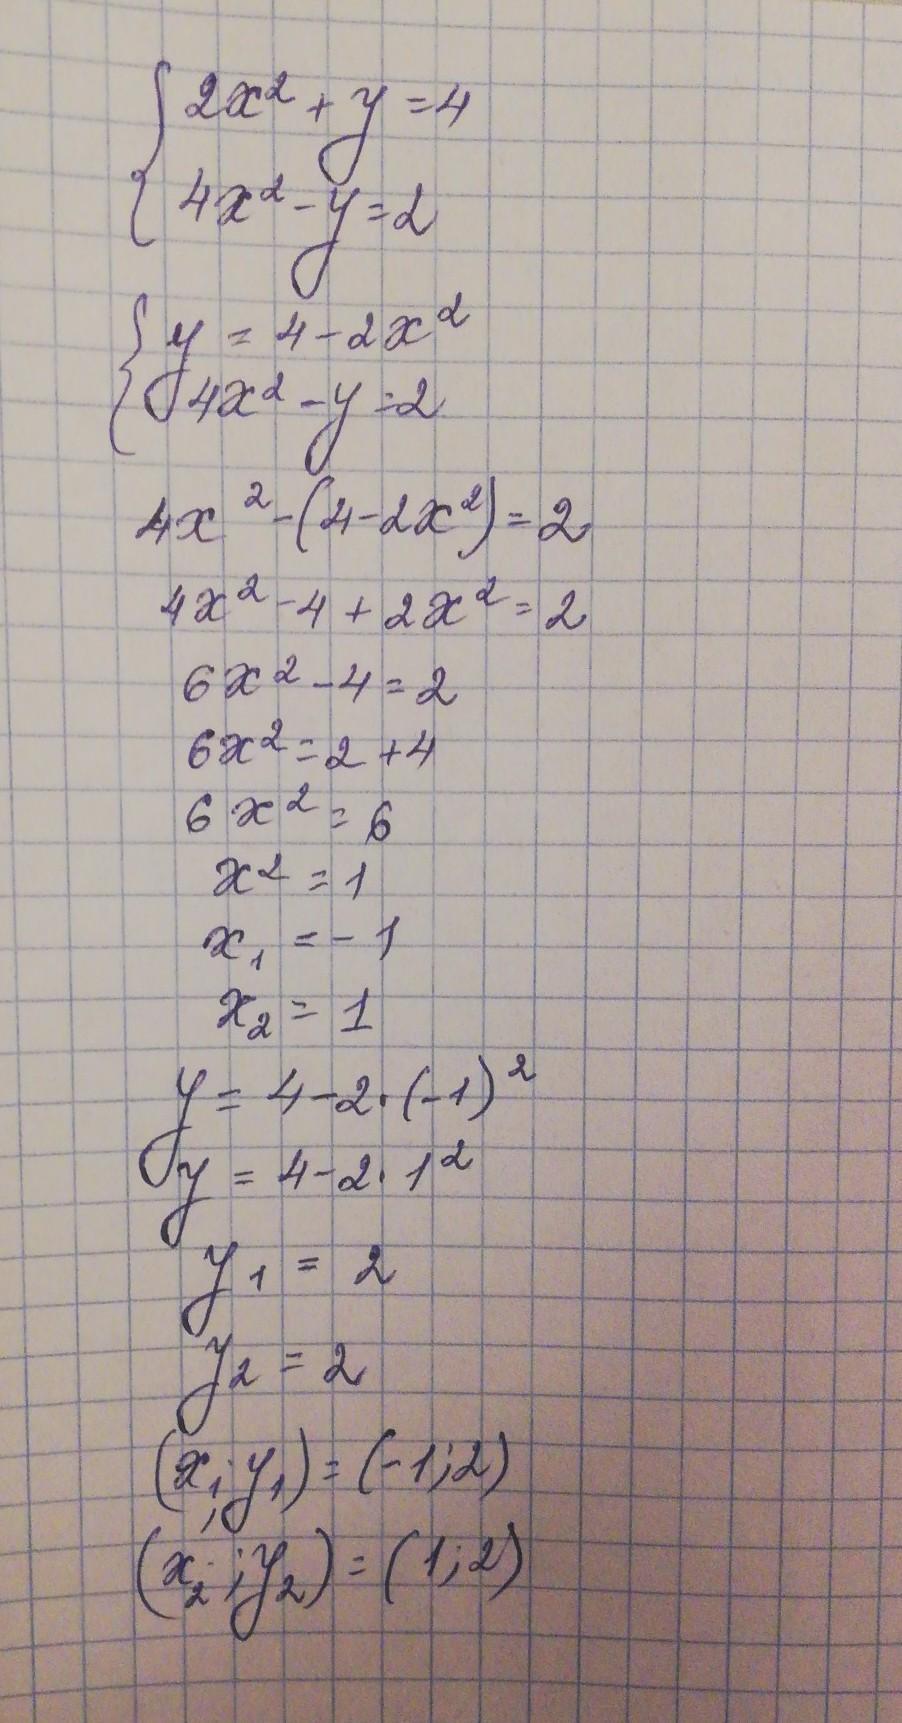 { 2x² + y = 4
4x² - y = 2
{ y = 4 - 2x²
4x² - y = 2
4x² - (4 - 2x²) = 2
4x² - 4 + 2x² = 2
6x² - 4 = 2
6x² = 2 + 4
6x² = 6
x² = 1
x₁ = -1
x₂ = 1
y = 4 - 2·(-1)²
y = 4 - 2·1²
y₁ = 2
y₂ = 2
(x₁; y₁) = (-1; 2)
(x₂; y₂) = (1; 2)